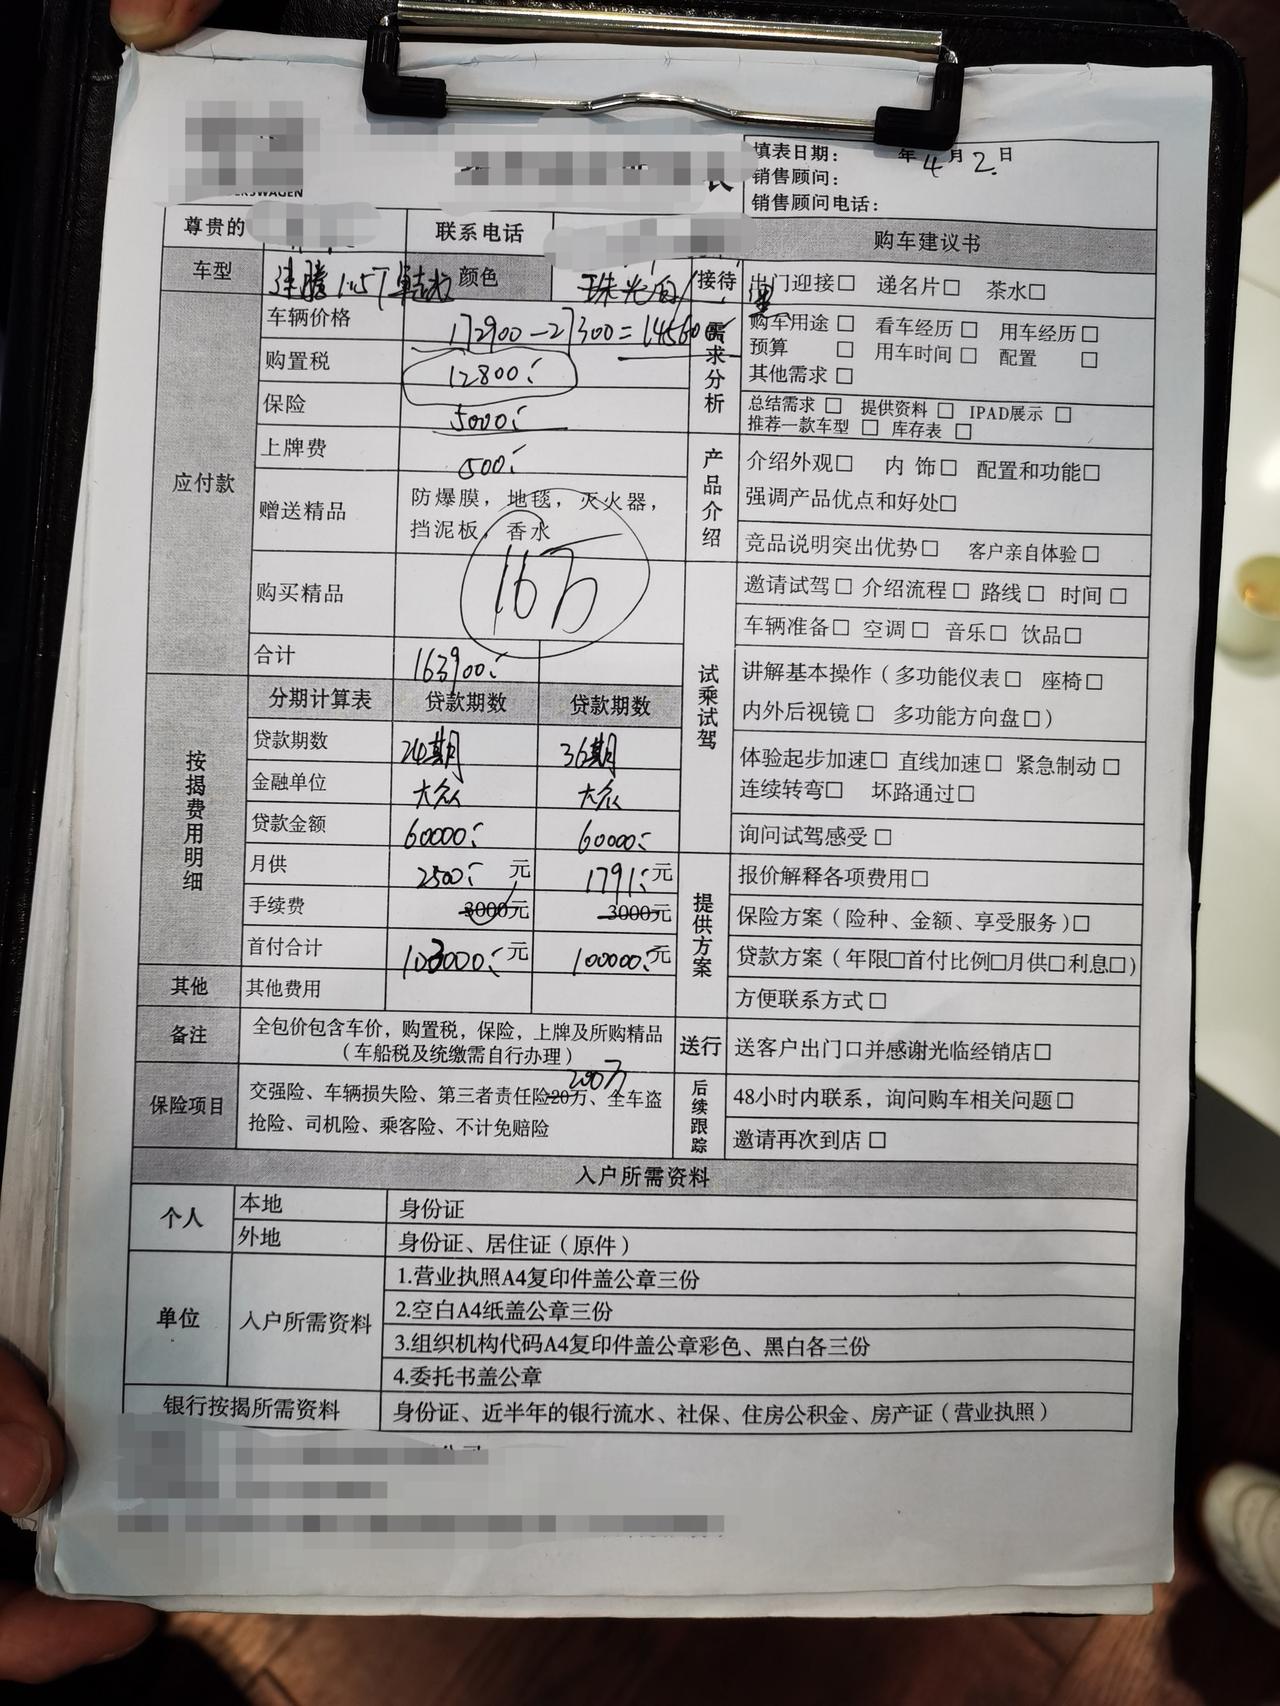 填表日期： 年4月2日
销售顾问：
销售顾问电话：
尊贵的 联系电话 购车建议书
车型 速腾1.5T 颜色 珠光白/ 接待 出门迎接□ 递名片□ 茶水□
应付款 车辆价格 172900-27300=145600 需求分析 购车用途□ 看车经历□ 用车经历□
预算□ 用车时间□ 配置□
购置税 12800
其他需求□
保险 5000
总结需求□ 提供资料□ IPAD展示□
推荐一款车型□ 库存表□
上牌费 500
产品介绍 介绍外观□ 内 饰□ 配置和功能□
强调产品优点和好处□
赠送精品 防爆膜，地毯，灭火器，
挡泥板，香水
竞品说明突出优势□ 客户亲自体验□
购买精品 16万
试乘试驾 邀请试驾□ 介绍流程□ 路线□ 时间□
车辆准备□ 空调□ 音乐□ 饮品□
合计 163900
讲解基本操作（多功能仪表□ 座椅□
内外后视镜□ 多功能方向盘□）
按揭费用明细 分期计算表 贷款期数 贷款期数
贷款期数 24期 36期
体验起步加速□ 直线加速□ 紧急制动□
连续转弯□ 坏路通过□
金融单位 大众 大众
贷款金额 60000 60000
询问试驾感受□
月供 2500元 1791元
提供方案 报价解释各项费用□
手续费 3000元 3000元
保险方案（险种、金额、享受服务）□
首付合计 103000元 100000元
贷款方案（年限□首付比例□月供□利息□）
其他 其他费用
方便联系方式□
备注 全包价包含车价，购置税，保险，上牌及所购精品
（车船税及统缴需自行办理）
送行 送客户出门口并感谢光临经销店□
200万
保险项目 交强险、车辆损失险、第三者责任险20万、全车盗
抢险、司机险、乘客险、不计免赔险
后续跟踪 48小时内联系，询问购车相关问题□
邀请再次到店□
入户所需资料
个人 本地 身份证
外地 身份证、居住证（原件）
单位 入户所需资料 1.营业执照A4复印件盖公章三份
2.空白A4纸盖公章三份
3.组织机构代码A4复印件盖公章彩色、黑白各三份
4.委托书盖公章
银行按揭所需资料 身份证、近半年的银行流水、社保、住房公积金、房产证（营业执照）